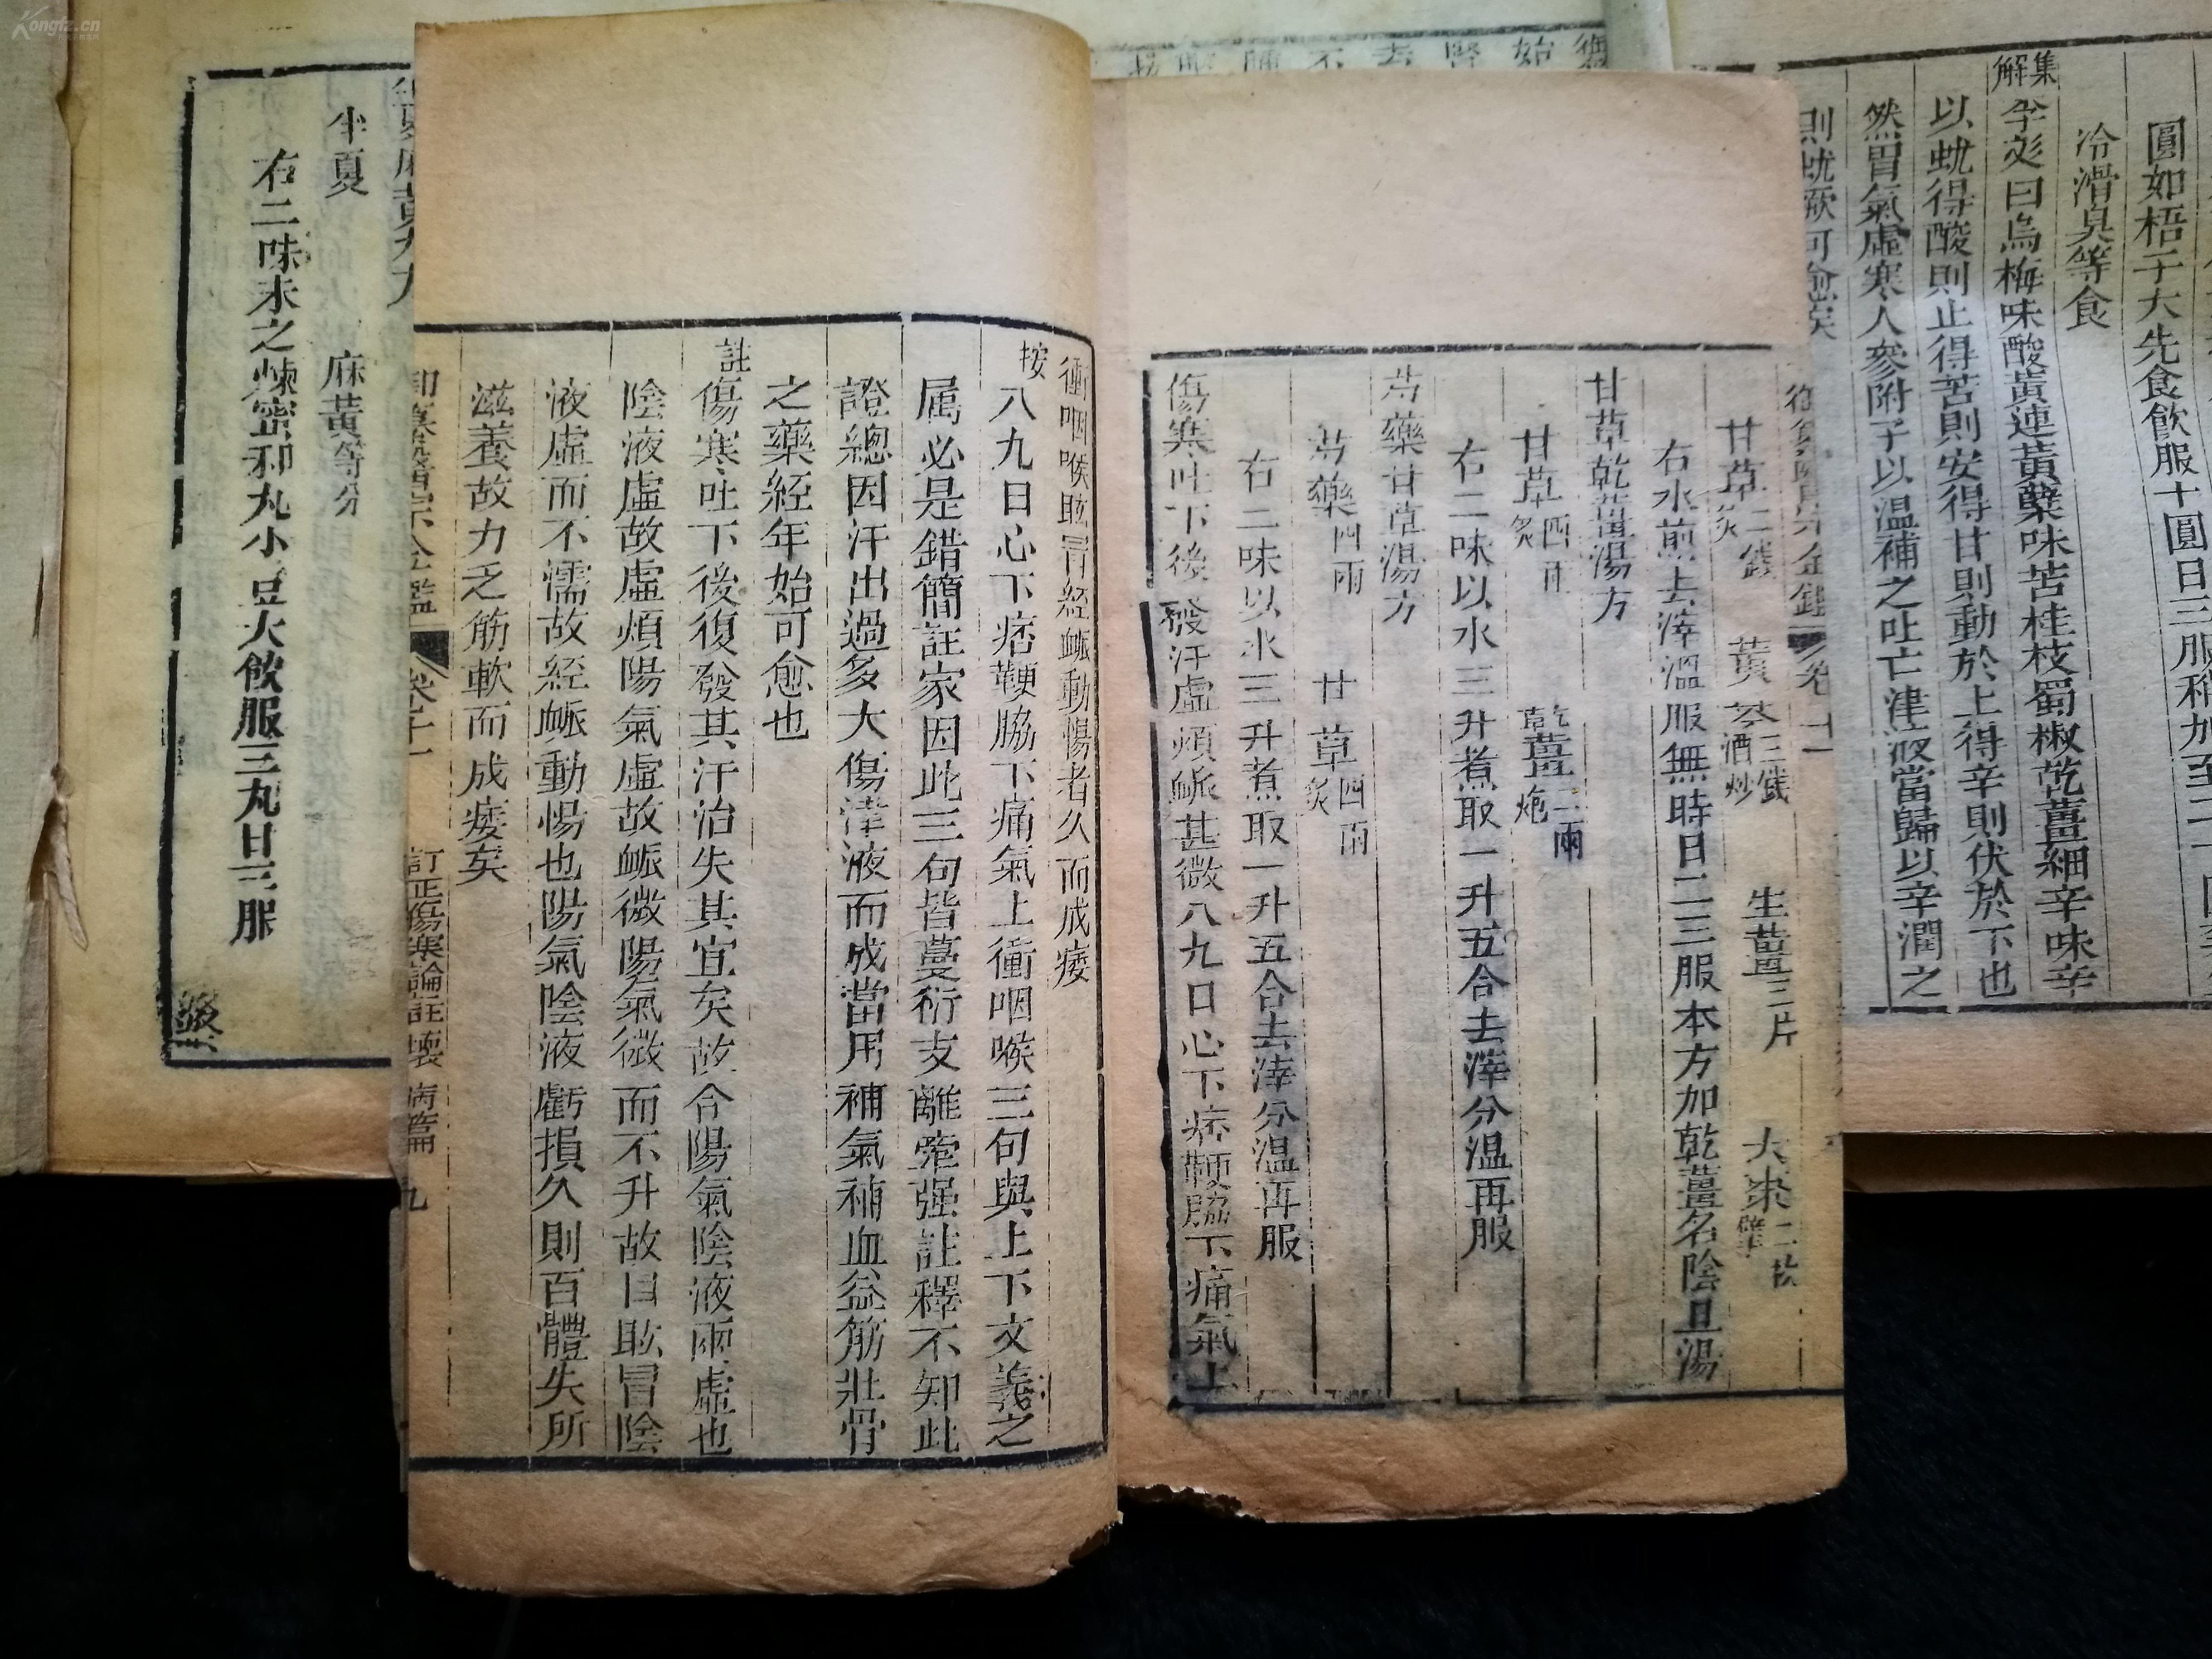 圓如梧子大先食飲服十圓日三服稍加至二十
冷滑臭等食
集解
李彣曰烏梅味酸黃連黃蘗味苦桂枝蜀椒乾薑細辛味辛
以蚘得酸則止得苦則安得甘則動於上得辛則伏於下也
然胃氣虛寒人參附子以溫補之吐亡津液當歸以辛潤之
則蚘厥可愈矣
甘草二錢炙 黃芩三錢酒炒 生薑三片 大棗二枚擘
右水煎去滓溫服無時日二三服本方加乾薑名陰旦湯
甘草乾薑湯方
甘草四兩炙 乾薑二兩炮
右二味以水三升煮取一升五合去滓分溫再服
芍藥甘草湯方
芍藥四兩 甘草四兩炙
右二味以水三升煮取一升五合去滓分溫再服
傷寒吐下後發汗虛煩脈甚微八九日心下痞鞕脇下痛氣上
衝咽喉眩冒經脈動惕者久而成痿
按八九日心下痞鞕脇下痛氣上衝咽喉三句與上下文義之
屬必是錯簡註家因此三句皆蔓衍支離牽强註釋不知此
證總因汗出過多大傷津液而成當用補氣補血益筋壯骨
之藥經年始可愈也
註傷寒吐下後復發其汗治失其宜矣故令陽氣陰液兩虛也
陰液虛故虛煩陽氣虛故脈微陽氣微而不升故目眩冒陰
液虛而不濡故經脈動惕也陽氣陰液虧損久則百體失所
滋養故力乏筋軟而成痿矣
御纂醫宗金鑑 卷十一 訂正傷寒論註壞病篇 九
半夏麻黃丸方
半夏 麻黃等分
右二味末之煉蜜和丸小豆大飲服三丸日三服
Kongfz.cn